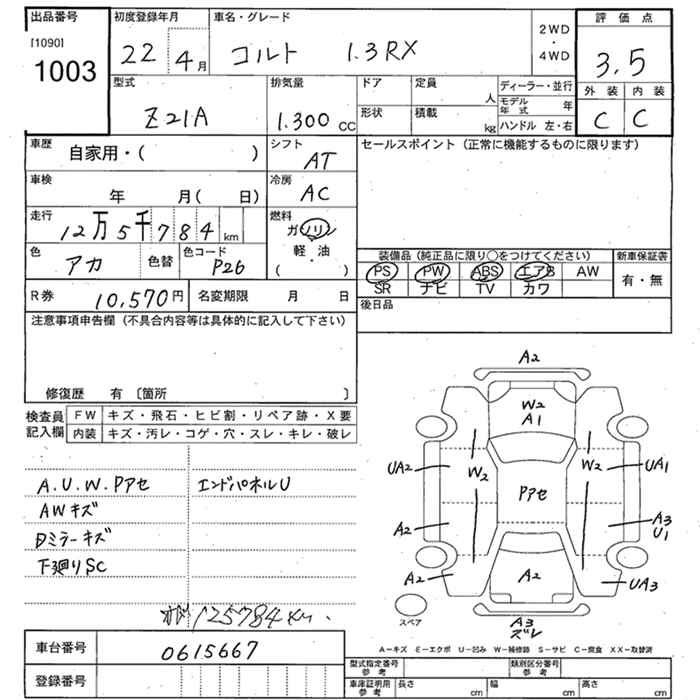 出品番号
[1090]
1003
初度登録年月
22 4月
車名・グレード
コルト 1.3RX
2WD
・
4WD
評価点
3.5
外装 内装
C C
型式
Z21A
排気量
1.300 CC
ドア
形状
定員
人
積載
kg
ディーラー・並行
モデル年式 年
ハンドル 左・右
車歴
自家用・( )
シフト
AT
セールスポイント (正常に機能するものに限ります)
車検
年 月( 日)
冷房
AC
走行
12万5千784km
燃料
ガソリン
軽・油
( ・ )
色
アカ
色替
色コード
P26
装備品 (純正品に限り○をつけてください)
PS PW ABS エアB AW
SR ナビ TV カワ
新車保証書
有・無
R券 10,570円
名変期限 月 日
後日品
注意事項申告欄 (不具合内容等は具体的に記入して下さい)
修復歴 有 〔箇所 〕
検査員
記入欄
FW キズ・飛石・ヒビ割・リペア跡・X要
内装 キズ・汚レ・コゲ・穴・スレ・キレ・破レ
A.U.W.Pアセ エンドパネルU
AWキズ
Dミラーキズ
下廻りSC
125784km.
A2
W2
A1
UA2 W2 W2 UA1
Pアセ
A2 A3
U1
A2 A2 UA3
スペア
A3
ズレ
A-キズ E-エクボ U-凹み W-補修跡 S-サビ C-腐食 XX-取替済
車台番号 0615667
登録番号
型式指定番号
参考
類別区分番号
参考
車庫証明用
参考
長さ cm 幅 cm 高さ cm